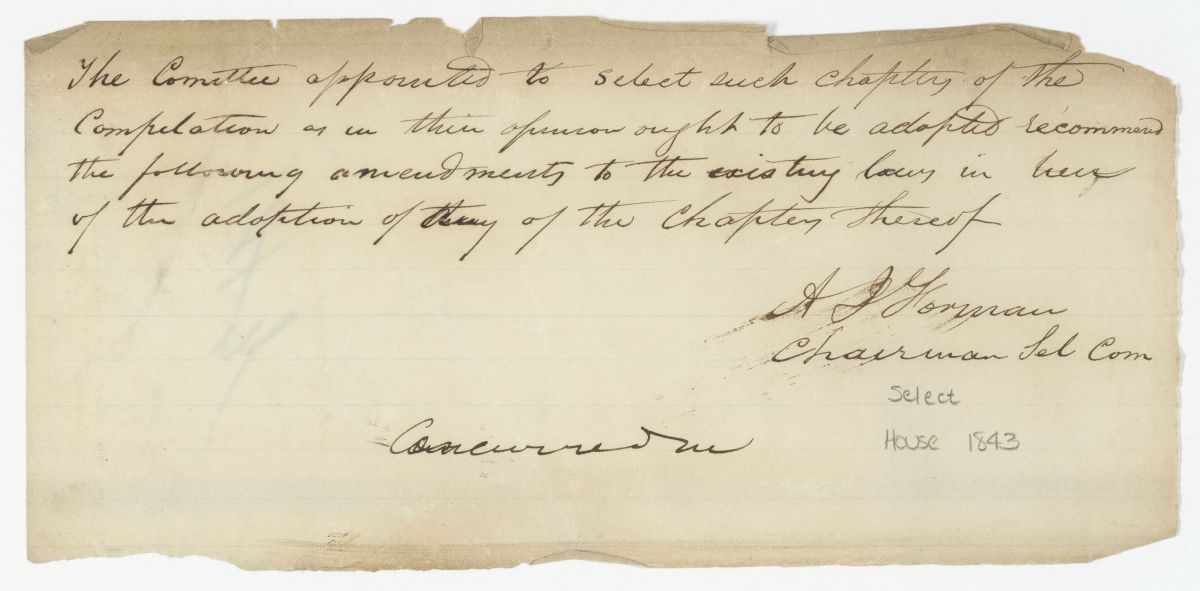 The Comittee appointed to select such chapters of the
Compilation as in their opinion ought to be adopted recommend
the following amendments to the existing laws in lieu
of the adoption of any of the Chapters thereof
A J Forman
Chairman Sel Com
Select
House 1843
Concurred in